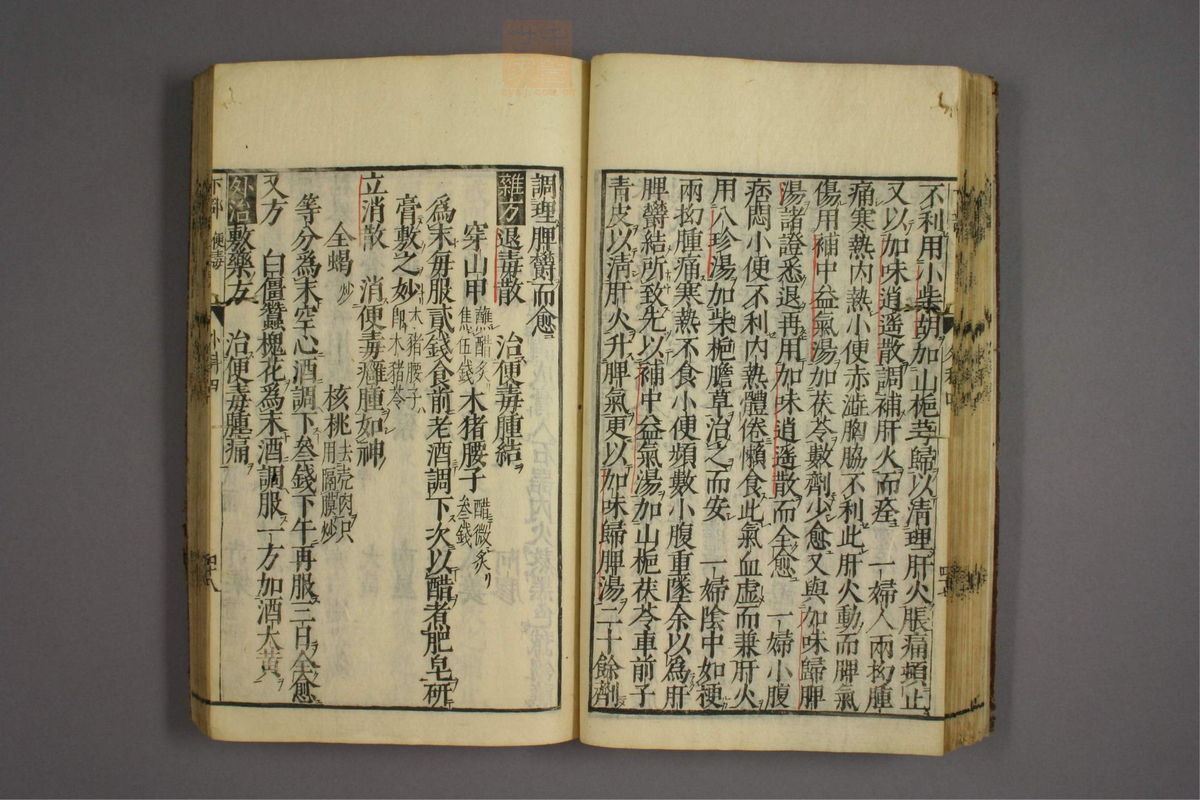 不利用小柴胡加山梔芎歸以清理肝火脹痛頓止
又以加味逍遙散調補肝火而痊 一婦人兩拗腫
痛寒熱內熱小便赤澁胸脇不利此肝火動而脾氣
傷用補中益氣湯加茯苓數劑少愈又與加味歸脾
湯諸證悉退再用加味逍遙散而全愈 一婦小腹
痞悶小便不利內熱體倦懶食此氣血虛而兼肝火
用八珍湯加柴梔膽草治之而安 一婦陰中如梗
兩拗腫痛寒熱不食小便頻數小腹重墜余以為肝
脾鬱結所致先以補中益氣湯加山梔茯苓車前子
青皮以淸肝火升脾氣更以加味歸脾湯二十餘劑
調理脾鬱而愈
雜方 退毒散 治便毒腫結
穿山甲 蘸醋炙焦伍錢 木猪腰子 醋微炙叁錢
為末每服貳錢食前老酒調下次以醋者肥皂研
膏敷之妙 木猪腰子即木猪苓
立消散 消便毒癰腫如神
全蝎 炒 核桃 去壳肉只用隔膜炒
等分為末空心酒調下叁錢下午再服三日全愈
又方 白僵蠶槐花為末酒調服一方加酒大黃
外治敷藥方 治便毒腫痛
下部 便毒 四十八